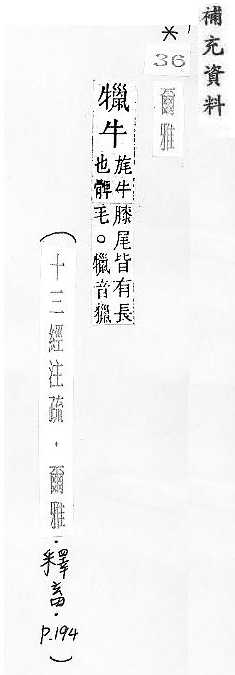 補充資料
*
36
爾雅
犣牛
旄牛膝尾皆有長
也髀毛。犣音獵
(十三經注疏．爾雅．釋畜．P.194)